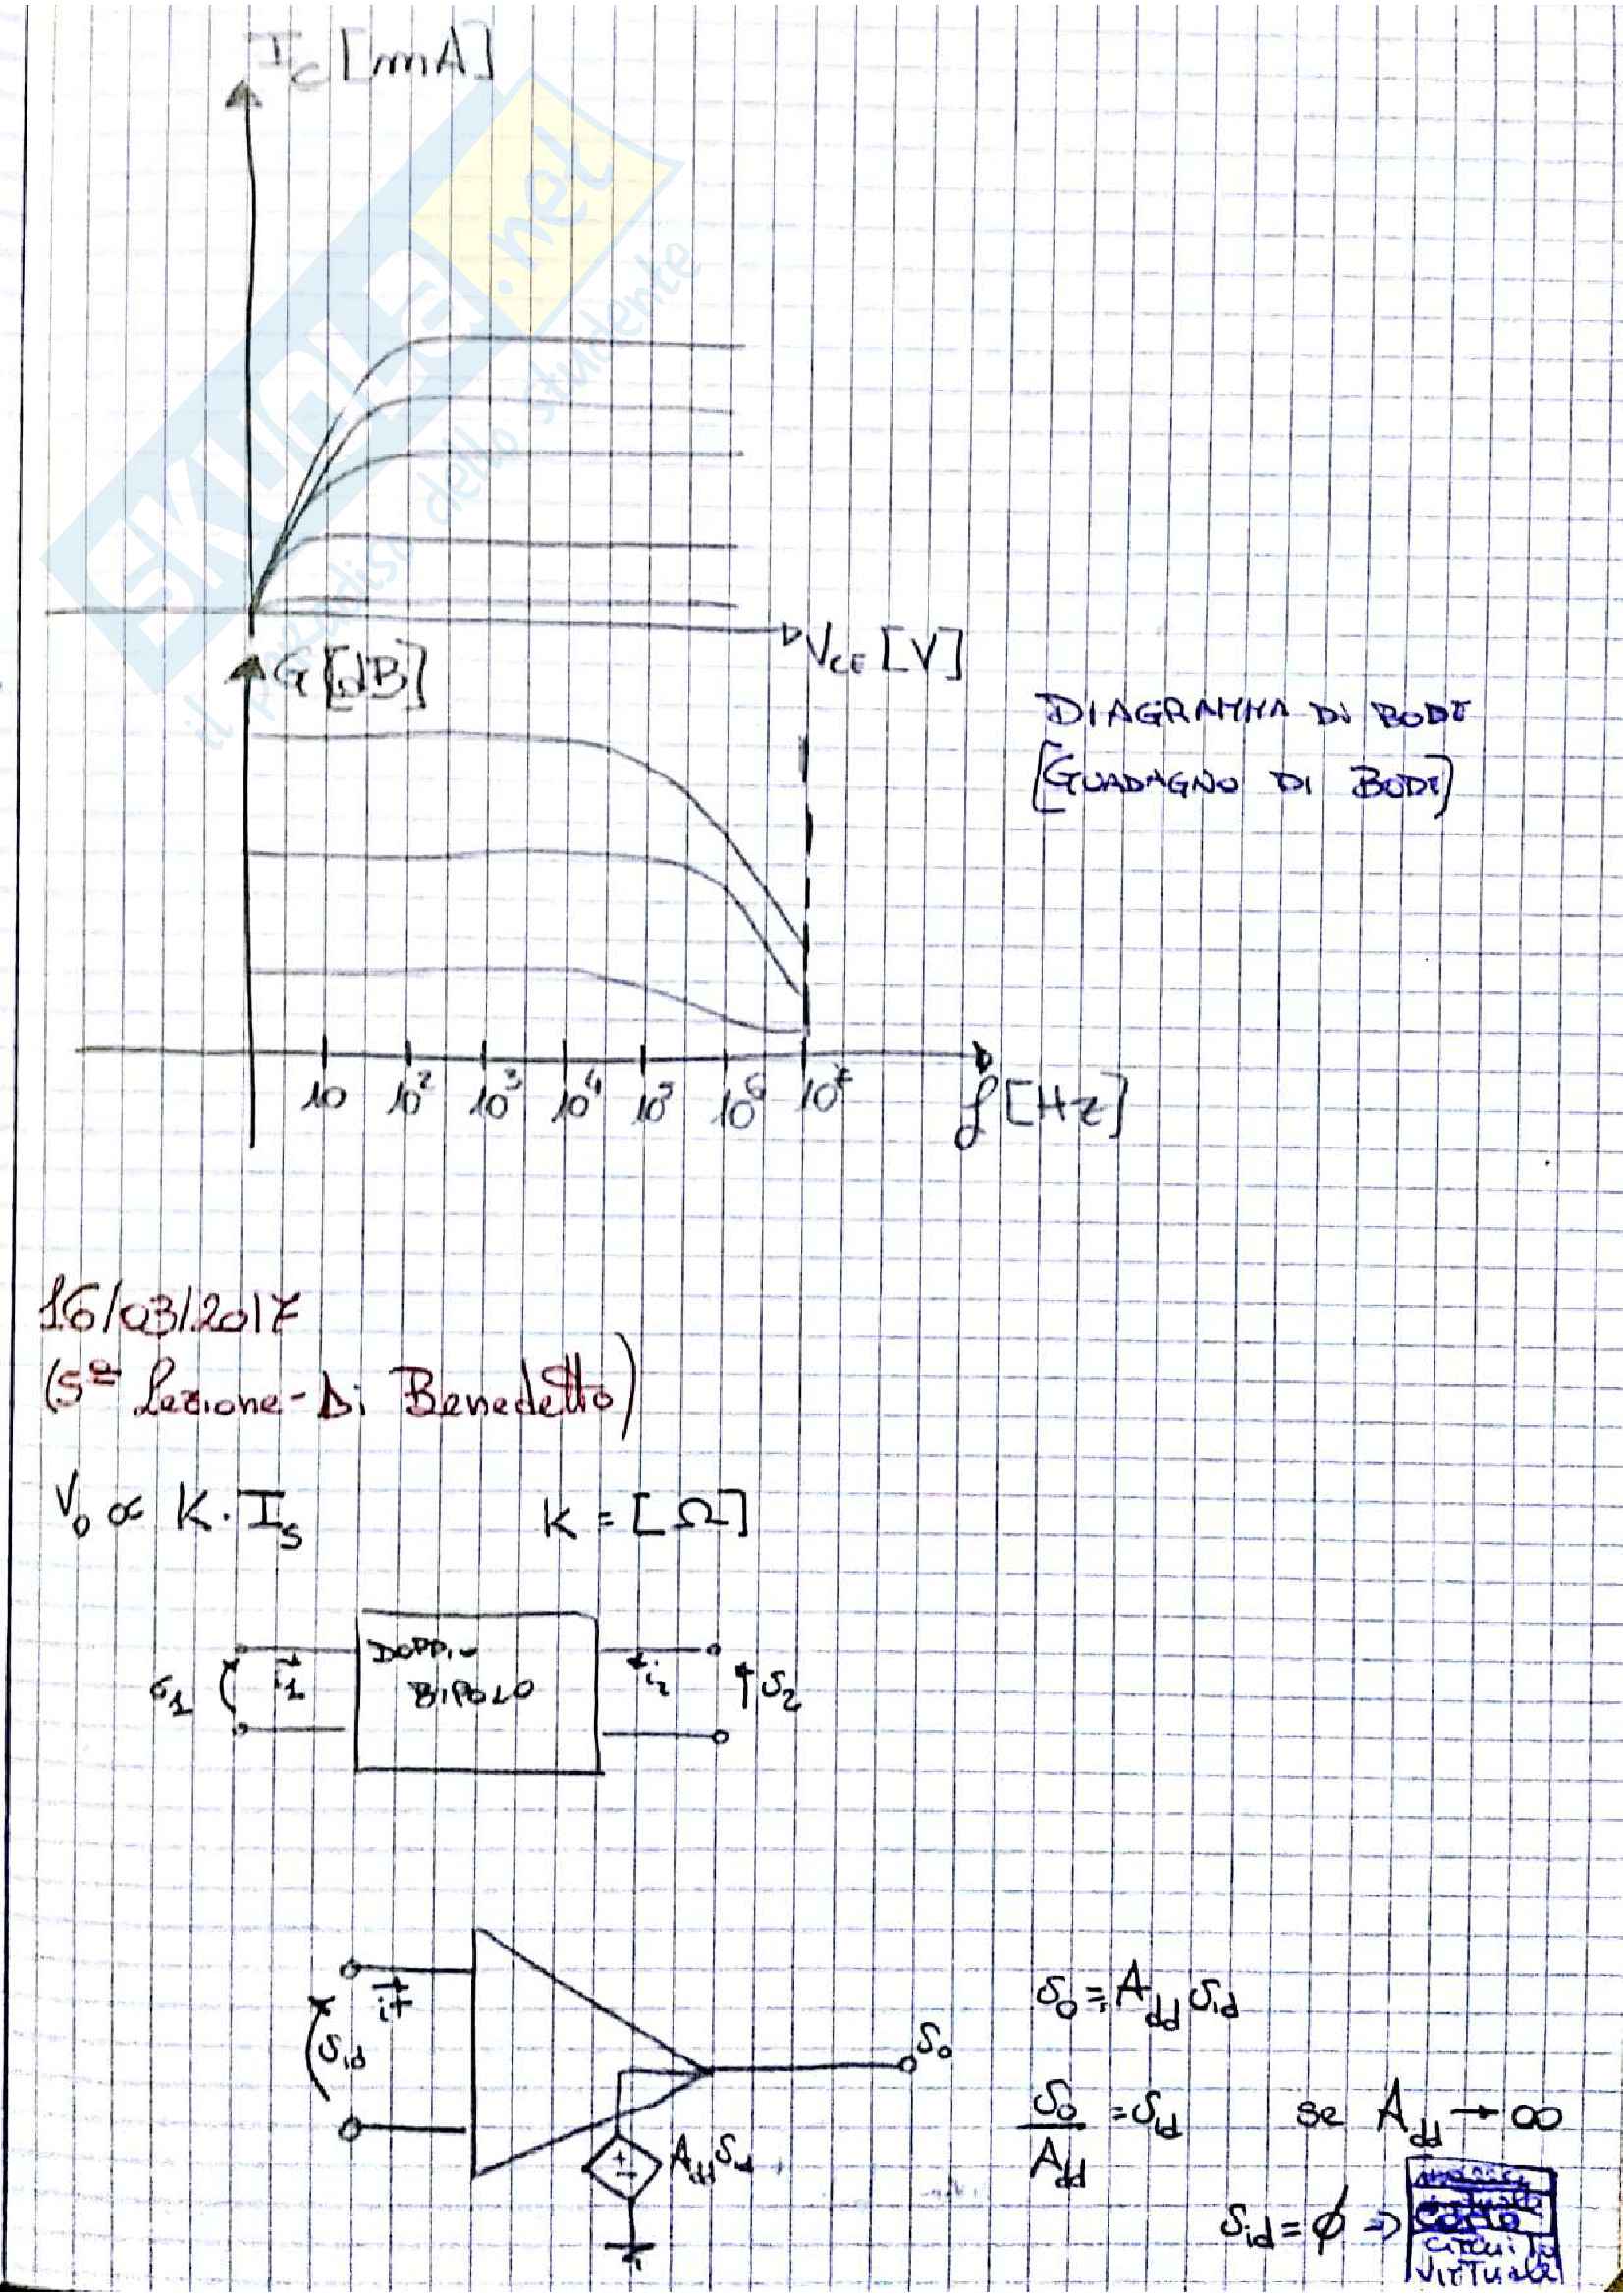 I_C [mA]
SKUOLA.net
il paradiso dello studente
V_CE [V]
G [dB]
DIAGRAMMA DI BODE
[GUADAGNO DI BODE]
10 10² 10³ 10⁴ 10⁵ 10⁶ 10⁷
f [Hz]
16/03/2017
(5ª Lezione - Di Benedetto)
V₀ ∝ K · I_s K = [Ω]
DOPPIO
BIPOLO
v₁ i₁ i₂ v₂
i+
v_id
v₀
+
-
A_dd v_id
v₀ = A_dd v_id
v₀/A_dd = v_id se A_dd → ∞
v_id = ϕ ⇒
Corto
circuito
virtuale